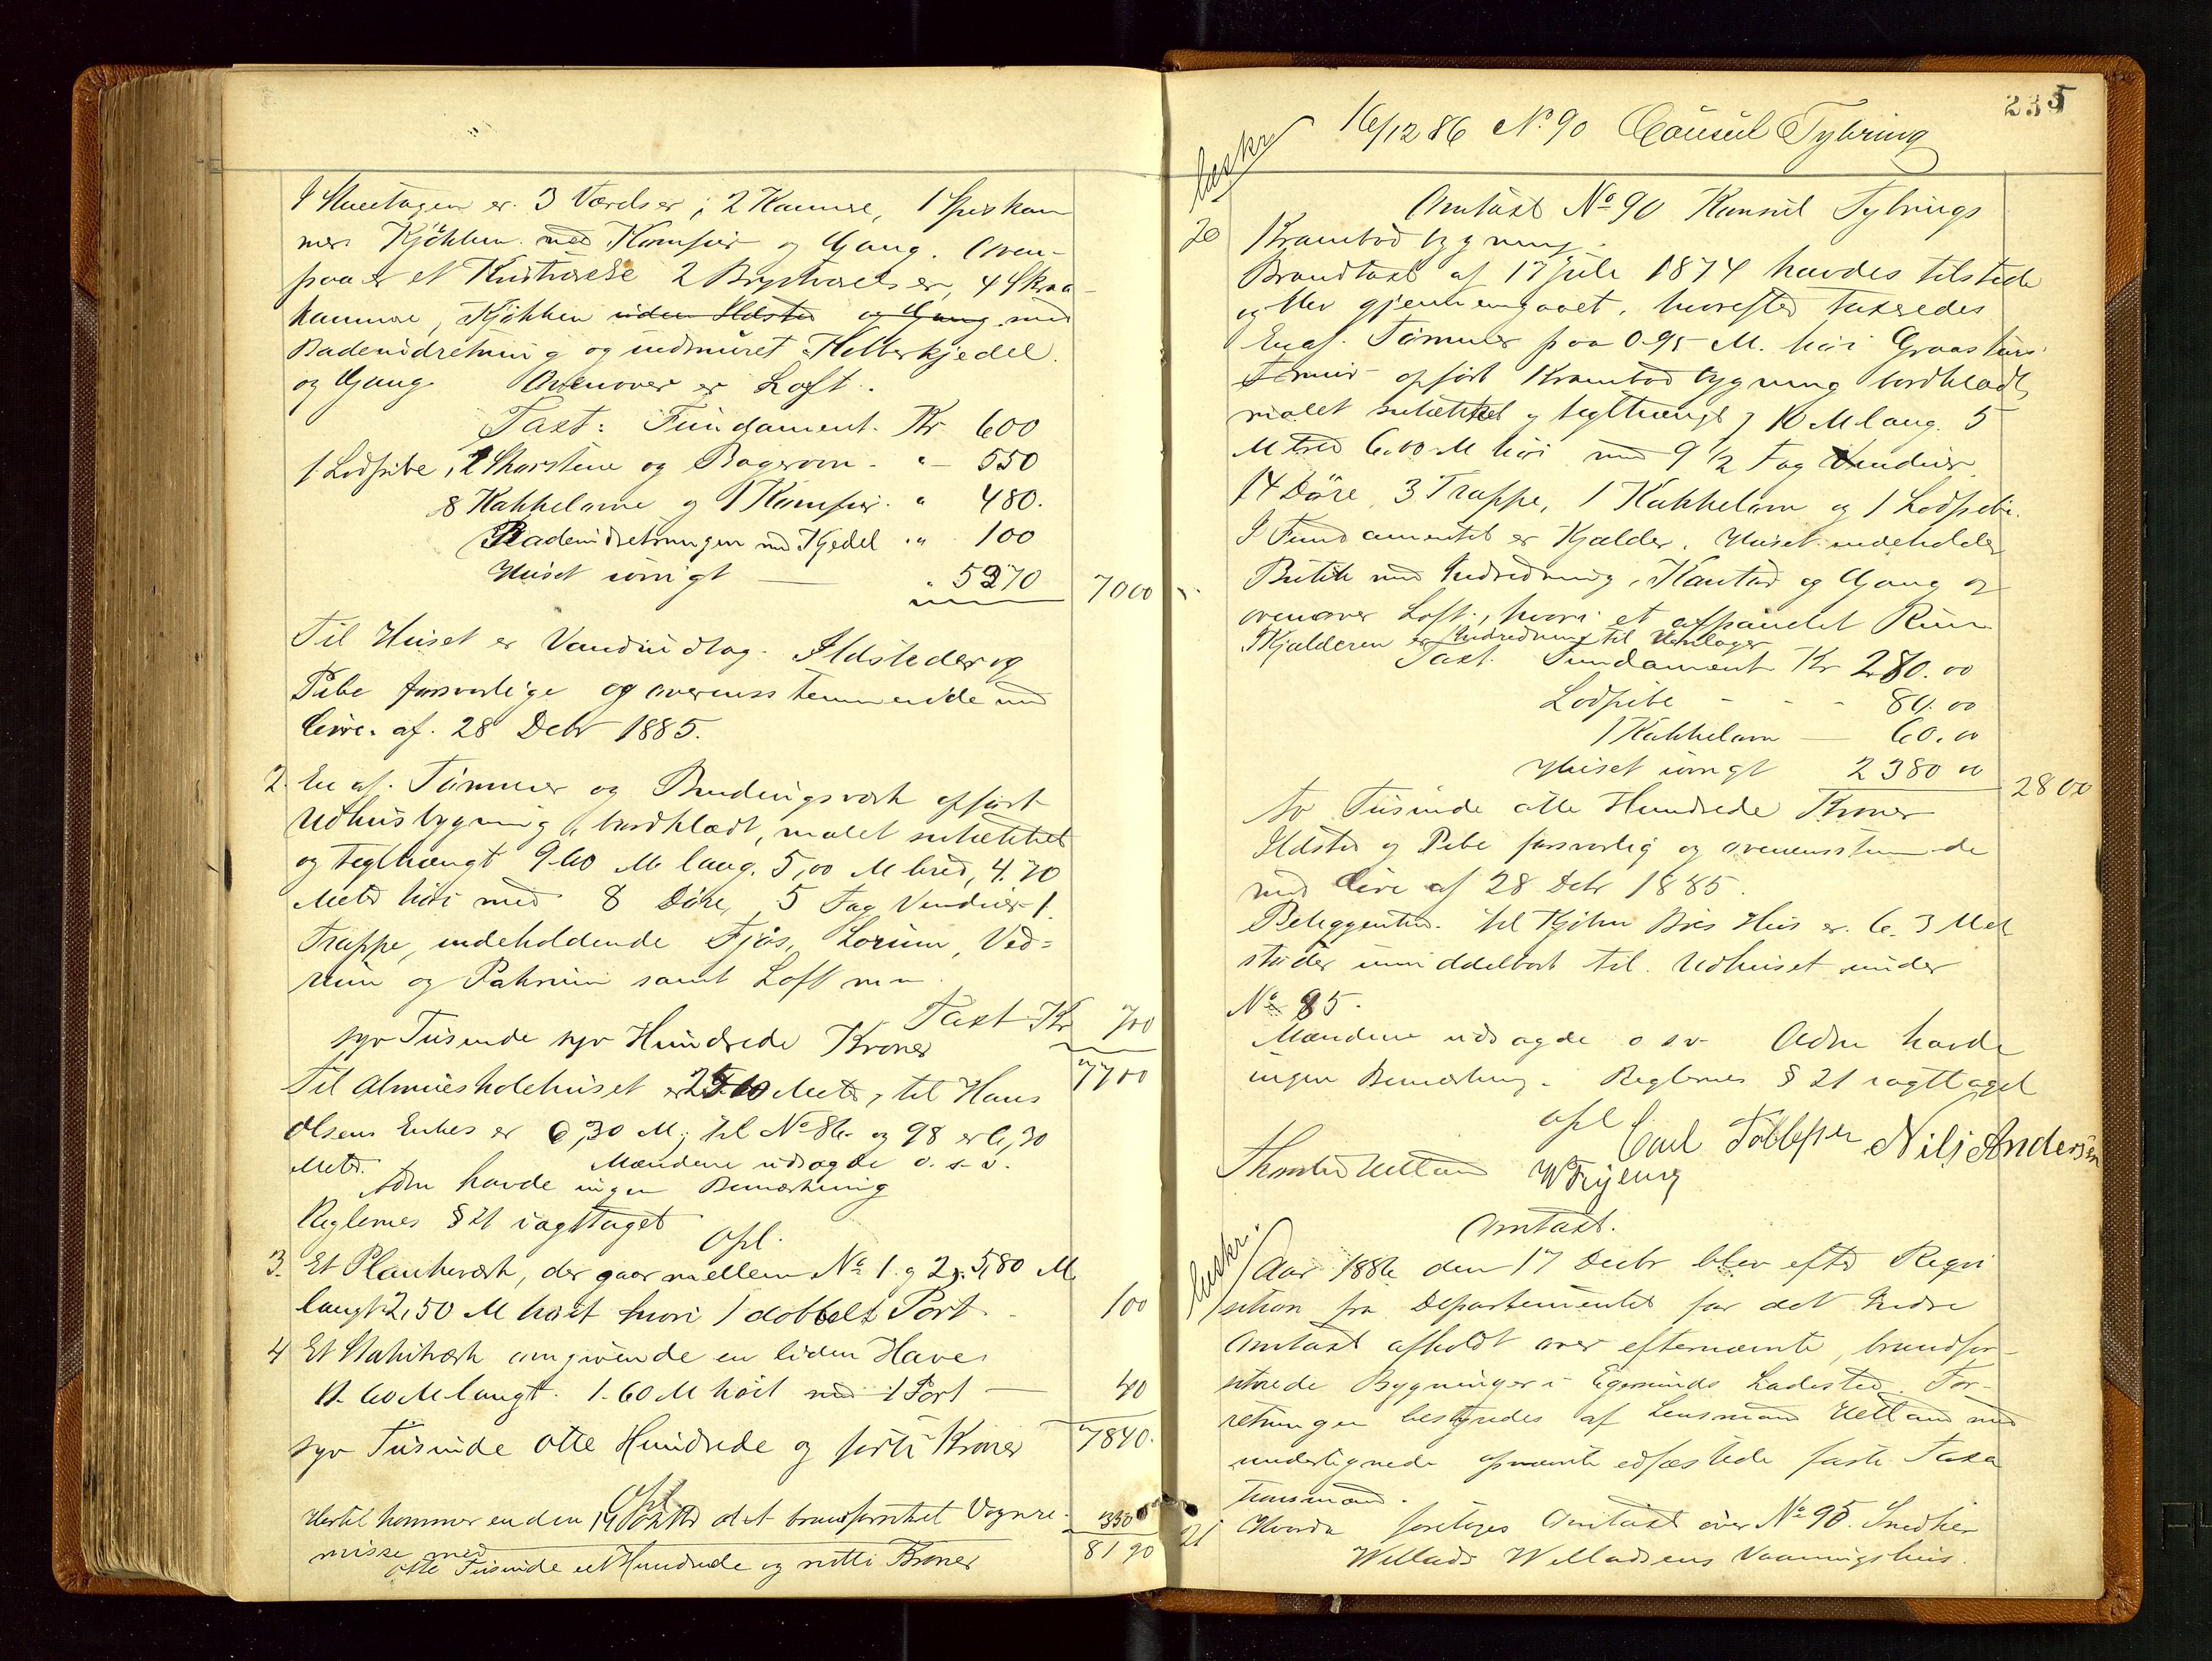 I Stueetagen er 3 Værelser, 2 Kammere, 1 Spiskam
mer Kjøkken med Komfur og Gang. Oven-
paa er et Kvistværelse 2 Brystværelser, 4 Skraa-
kammere, Kjøkken uden Ildsted og Gang med
Badeindretning og indmuret Kobberkjedel.
og Gang. Ovenover er Loft.
Taxt: Fundament. Kr 600
1 Lodpibe, 2 Skorstene og Bagerovn. " - 550
8 Kakkelovne og 1 Komfur. " 480.
Badeindretningen med Kjedel " 100
Huset iøvrigt " 5270 7000
Til Huset er Vandindtag. Ildsteder og
Pibe forsvarlige og overensstemmende med
Circ. af. 28 Debr 1885.
2. En af. Tømmer og Bindingsværk opført
Udhusbygning, bordklædt, malet
og teglhængt 9.60 M lang. 5,00 M bred, 4.70
Meter høi med 8 Døre, 5 Fag Vinduer 1
Trappe, indeholdende Fjøs, Ved-
rum og Pakrum samt Loft m m.
Taxt Kr 700
syv Tusinde syv Hundrede Kroner
7700
Til Almueskolehuset er 25.10 Meter, til Hans
Olsens Enkes er 6,30 M; til No 86 og 98 er 6,30
Meter. Mændene udsagde o. s. v.
Adm havde ingen Bemærkning
Reglernes § 21 iagttaget
Opl.
3. Et Plankeværk, der gaar mellem No 1 og 2, 5,80 M
langt 2,50 M høit hvori 1 dobbelt Port 100
4 Et Stakitværk omgivende en liden Have
11.60 M langt. 1.60 M høit med 1 Port — 40
syv Tusinde otte Hundrede og førti Kroner 7840.
Opl
Hertil kommer en den 14 det brandforsikret Vognre- 350
misse med 8190
otte Tusinde et Hundrede og nitti Kroner
235
16/12 86 No 90 Consul Tybring
beskr
Omtaxt No 90 Konsul Tybrings
20 Krambodbygning.
Brandtaxt af 17 juli 1874 havdes tilstede
og blev gjennemgaaet, hvorefter taxeredes
En af. Tømmer paa 0.95 M. høi Graastens
opført Krambodbygning bordklædt,
malet og teglhængt, 10 M lang. 5
M bred 6.00 M høi med 9 1/2 Fag Vinduer
14 Døre, 3 Trappe, 1 Kakkelovn og 1 Lodpibe.
I Fundamentet er Kjælder. Huset indeholder
Butik med Indredning, Kontor og Gang og
ovenover Loft, hvori et afpanelet Rum
I Kjælderen er Indredning til
Taxt. Fundament Kr 280.00
Lodpibe - - - 80.00
1 Kakkelovn — 60.00
Huset iøvrigt 2380 00
2800
to Tusinde otte Hundrede Kroner
Ildsted og Pibe forsvarlig og overensstemmende
med Circ af 28 Debr 1885.
Beliggenhed. til Kjøbm Hus er 6.3 Met
støder umiddelbart til Udhuset under
No 85.
Mændene udsagde o s v. Adm havde
ingen Bemærkning. Reglernes § 21 iagttaget
opl
Carl Tollefsen Nils Andersen
Uelland
Omtaxt.
beskr.
Aar 1886 den 17 Decbr blev efter Requi
sition fra Departementet for det Indre
Omtaxt afholdt over efternævnte, brandfor-
sikrede Bygninger i Egersunds Ladested. For-
retningen bestyredes af Lensmand Uelland med
undertegnede opnævnte edfæstede faste Taxa
tionsmænd.
21 Hvorda foretoges Omtaxt over No 95. Snedker
Wellads Welladsens Vaaningshus.